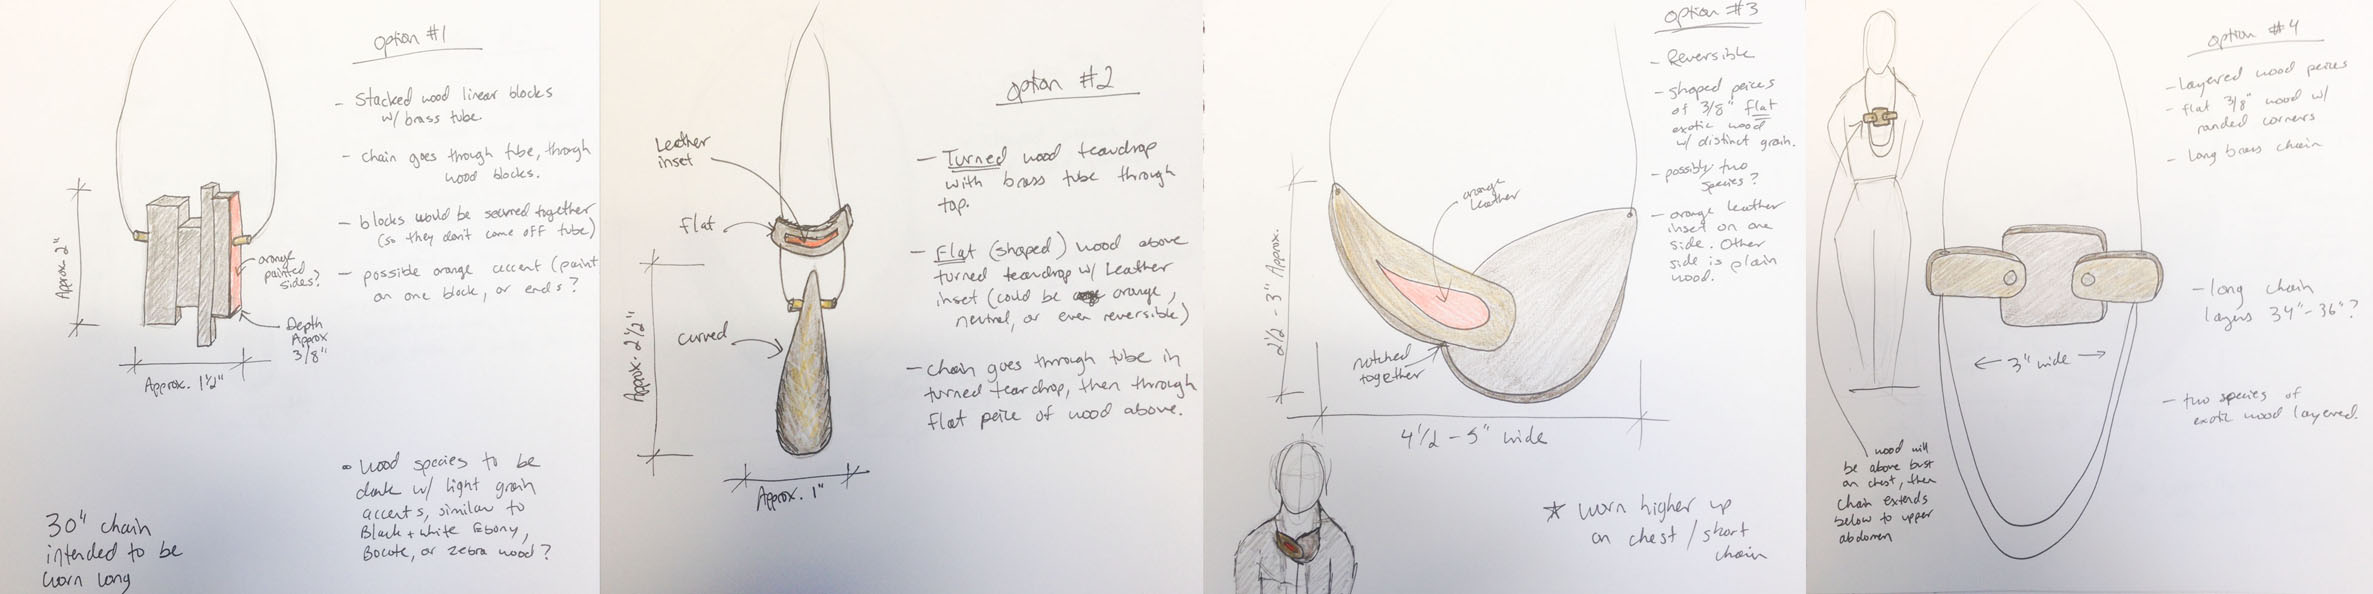 Option #1
- Stacked wood linear blocks
w/ brass tube.
- chain goes through tube, through
wood blocks.
- blocks would be secured together
(so they don't come off tube)
- possible orange accent (paint
on one block, or ends?
Approx. 2"
orange
painted
sides?
Depth
Approx
3/8"
Approx. 1 1/2"
• wood species to be
dark w/ light grain
accents, similar to
Black + white Ebony,
Bocote, or zebra wood?
30" chain
intended to be
worn long
Option #2
Leather
inset
flat
curved
Approx. 2 1/2"
Approx. 1"
- Turned wood teardrop
with brass tube through
top.
- Flat (shaped) wood above
turned teardrop w/ Leather
inset (could be orange,
neutral, or even reversible)
- Chain goes through tube in
turned teardrop, then through
flat peice of wood above.
Option #3
- Reversible
- shaped peices
of 3/8" flat
exotic wood
w/ distinct grain.
- possibly two
species?
- orange leather
inset on one
side. Other
side is plain
wood.
orange
leather
2 1/2 - 3" Approx.
notched
together
4 1/2 - 5" wide
* worn higher up
on chest / short
chain
Option #4
- Layered wood peices
- flat 3/8" wood w/
rounded corners
- long brass chain
- long chain
layers 34"-36"?
3" wide
- two species of
exotic wood layered.
wood will
be above bust
on chest, then
chain extends
below to upper
abdomen